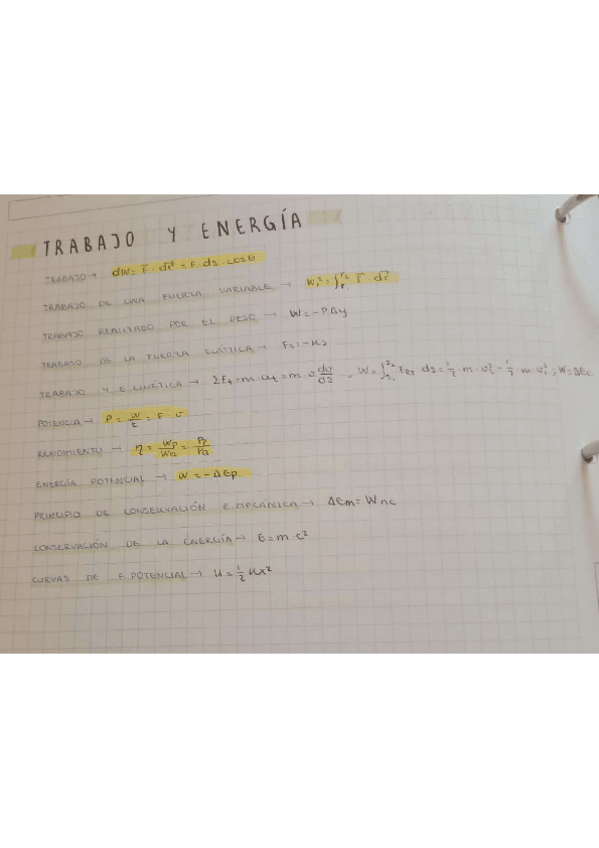 TRABAJO Y ENERGÍA
TRABAJO → dW = F⃗ · dr⃗ = F · ds · cosθ
TRABAJO DE UNA FUERZA VARIABLE → W₁² = ∫ F⃗ dr⃗
TRABAJO REALIZADO POR EL PESO → W = -PΔy
TRABAJO DE LA FUERZA ELÁSTICA →
TRABAJO Y E. CINÉTICA → ΣFt = m · at = m · v dv/ds , W = ∫ ds = 1/2 · m · v₂² - 1/2 · m · v₁² ; W = ΔEc
POTENCIA → P = W/t = F · v
RENDIMIENTO → η = Wp/Wa = Pp/Pa
ENERGÍA POTENCIAL → W = -ΔEp
PRINCIPIO DE CONSERVACIÓN E. MECÁNICA → ΔEm = Wnc
CONSERVACIÓN DE LA ENERGÍA → E = m · c²
CURVAS DE E. POTENCIAL → U = 1/2 kx²